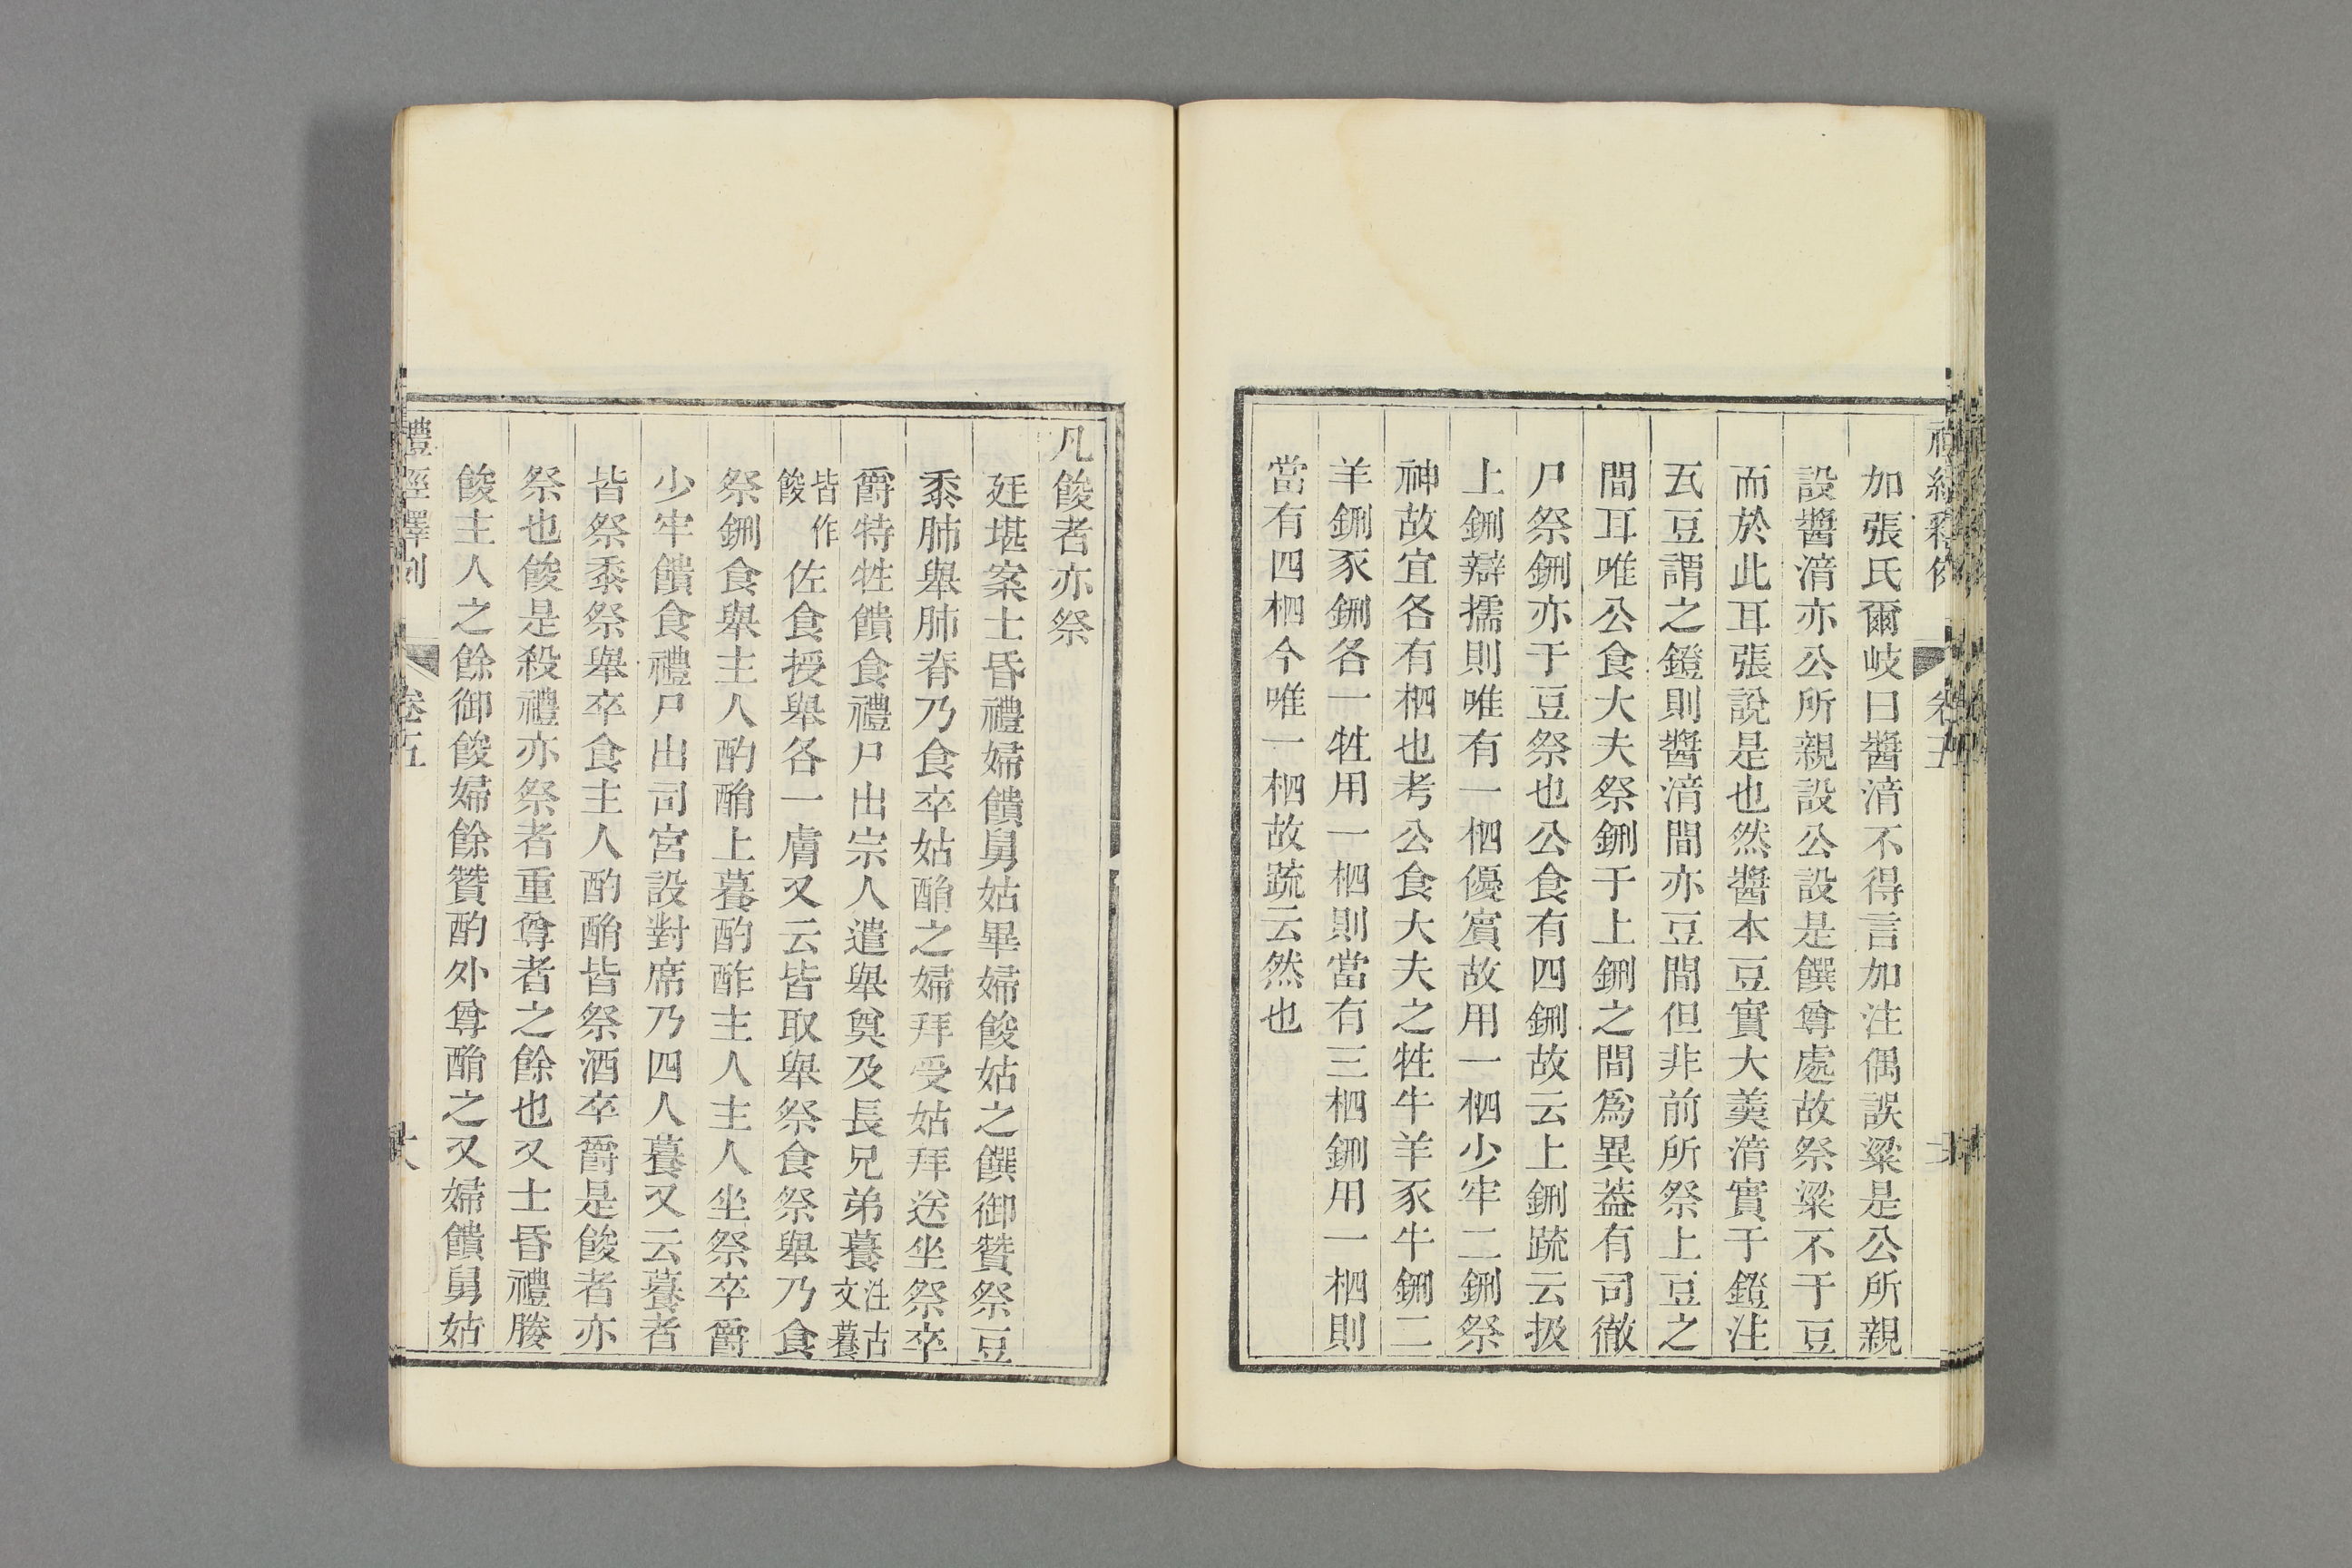 加張氏爾岐曰醬湇不得言加注偶誤粱是公所親
設醬湇亦公所親設公設是饌尊處故祭粱不于豆
而於此耳張說是也然醬本豆實大羹湇實于鐙注
瓦豆謂之鐙則醬湇間亦豆間但非前所祭上豆之
間耳唯公食大夫祭鉶于上鉶之間爲異葢有司徹
尸祭鉶亦于豆祭也公食有四鉶故云上鉶疏云扱
上鉶辯擩則唯有一柶優賓故用一柶少牢二鉶祭
神故宜各有柶也考公食大夫之牲牛羊豕牛鉶二
羊鉶豕鉶各一牲用一柶則當有三柶鉶用一柶則
當有四柶今唯一柶故疏云然也
凡餕者亦祭
廷堪案士昏禮婦饋舅姑畢婦餕姑之饌御贊祭豆
黍肺舉肺脊乃食卒姑酳之婦拜受姑拜送坐祭卒
爵特牲饋食禮尸出宗人遣舉奠及長兄弟䬸注古文䬸
皆作餕佐食授舉各一膚又云皆取舉祭食祭舉乃食
祭鉶食舉主人酌酳上䬸酌酢主人主人坐祭卒爵
少牢饋食禮尸出司宮設對席乃四人䬸又云䬸者
皆祭黍祭舉卒食主人酌酳皆祭酒卒爵是餕者亦
祭也餕是殺禮亦祭者重尊者之餘也又士昏禮媵
餕主人之餘御餕婦餘贊酌外尊酳之又婦饋舅姑
禮經釋例 卷五